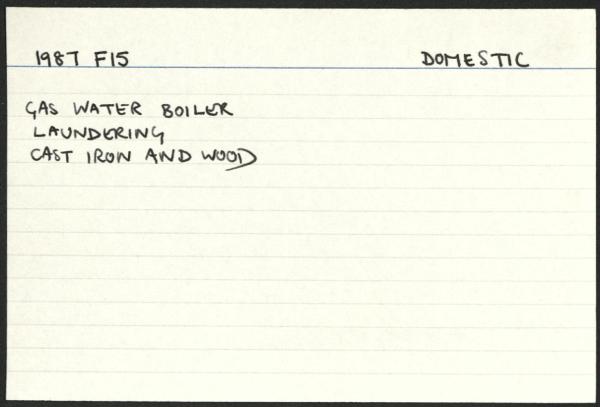 1987 F15 DOMESTIC
GAS WATER BOILER
LAUNDERING
CAST IRON AND WOOD